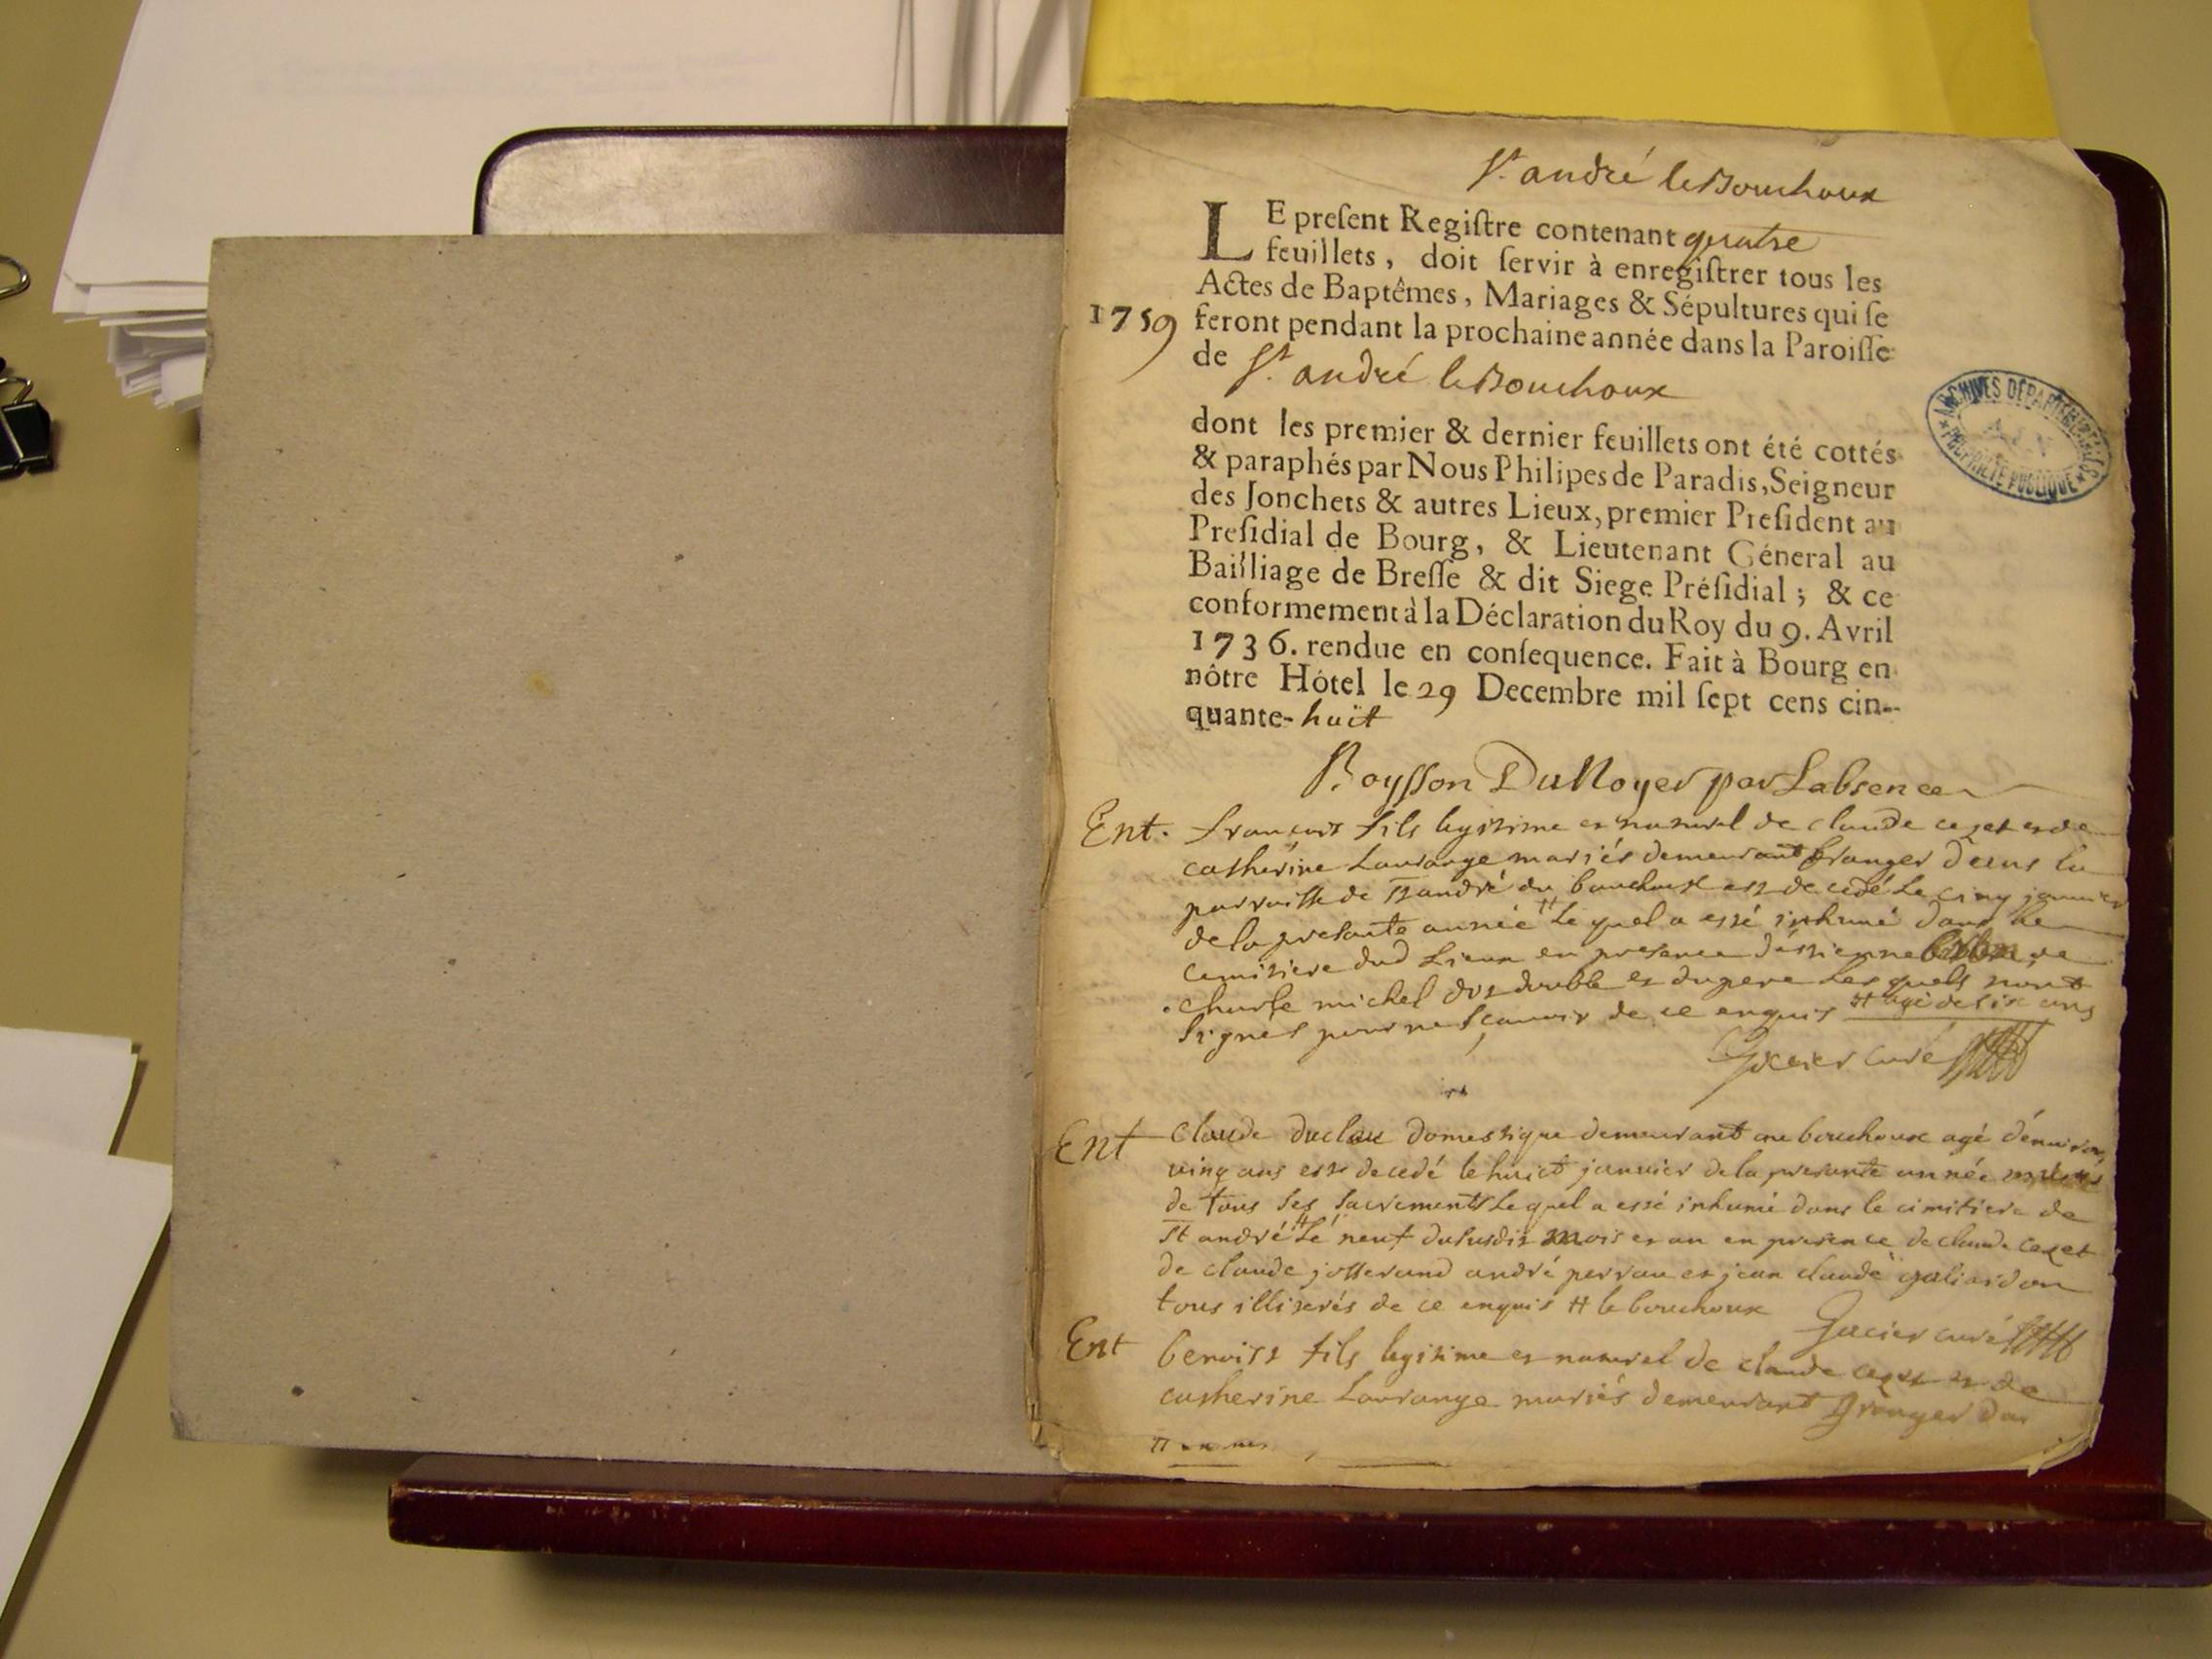 St. andré le Bouchoux
LE preſent Regiſtre contenant quatre
feuillets, doit ſervir à enregiſtrer tous les
Actes de Baptêmes, Mariages & Sépultures qui ſe
1759 feront pendant la prochaine année dans la Paroiſſe
de St. andré le Bouchoux
dont les premier & dernier feuillets ont été cottés
& paraphés par Nous Philipes de Paradis, Seigneur
des Jonchets & autres Lieux, premier Preſident au
Preſidial de Bourg, & Lieutenant Géneral au
Bailliage de Breſſe & dit Siege Préſidial; & ce
conformement à la Déclaration du Roy du 9. Avril
1736. rendue en conſequence. Fait à Bourg en
nôtre Hôtel le 29 Decembre mil ſept cens cin-
quante-huit
ARCHIVES DÉPARTEMENTALES
AIN
PROPRIÉTÉ PUBLIQUE
Boysson DuNoyer par Labsence
Ent. francois fils legitime et naturel de claude cezet et de
catherine Laurange mariés demeurant granger dens la
parroisse de St andré du bouchoux est decedé Le cinq janvier
de la presante année # Le quel a esté inhumé dans le
cimitiere dud Lieux en presence d'estienne
charle michel du double et du pere Les quels n'ont
signes pour ne scavoir de ce enquis # agé de six ans
Gacier curé
Ent claude duclou domestique demeurant au bouchoux agé d'environ
vingt ans est decedé le huict janvier de la presante année
de tous ses sacrements Lequel a esté inhumé dans le cimitiere de
St andré # Le neuf du susdit mois et an en presence de claude cezet
de claude josserand andré perrau et jean claude galiardon
tous illiterés de ce enquis # le bouchoux
Gacier curé
Ent benoist fils legitime et naturel de claude cezet et de
catherine Laurange mariés demeurant granger dans